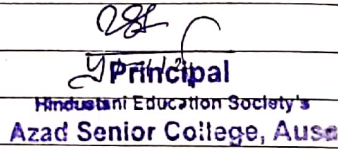 Principal
Hindustani Education Society's
Azad Senior College, Ausa